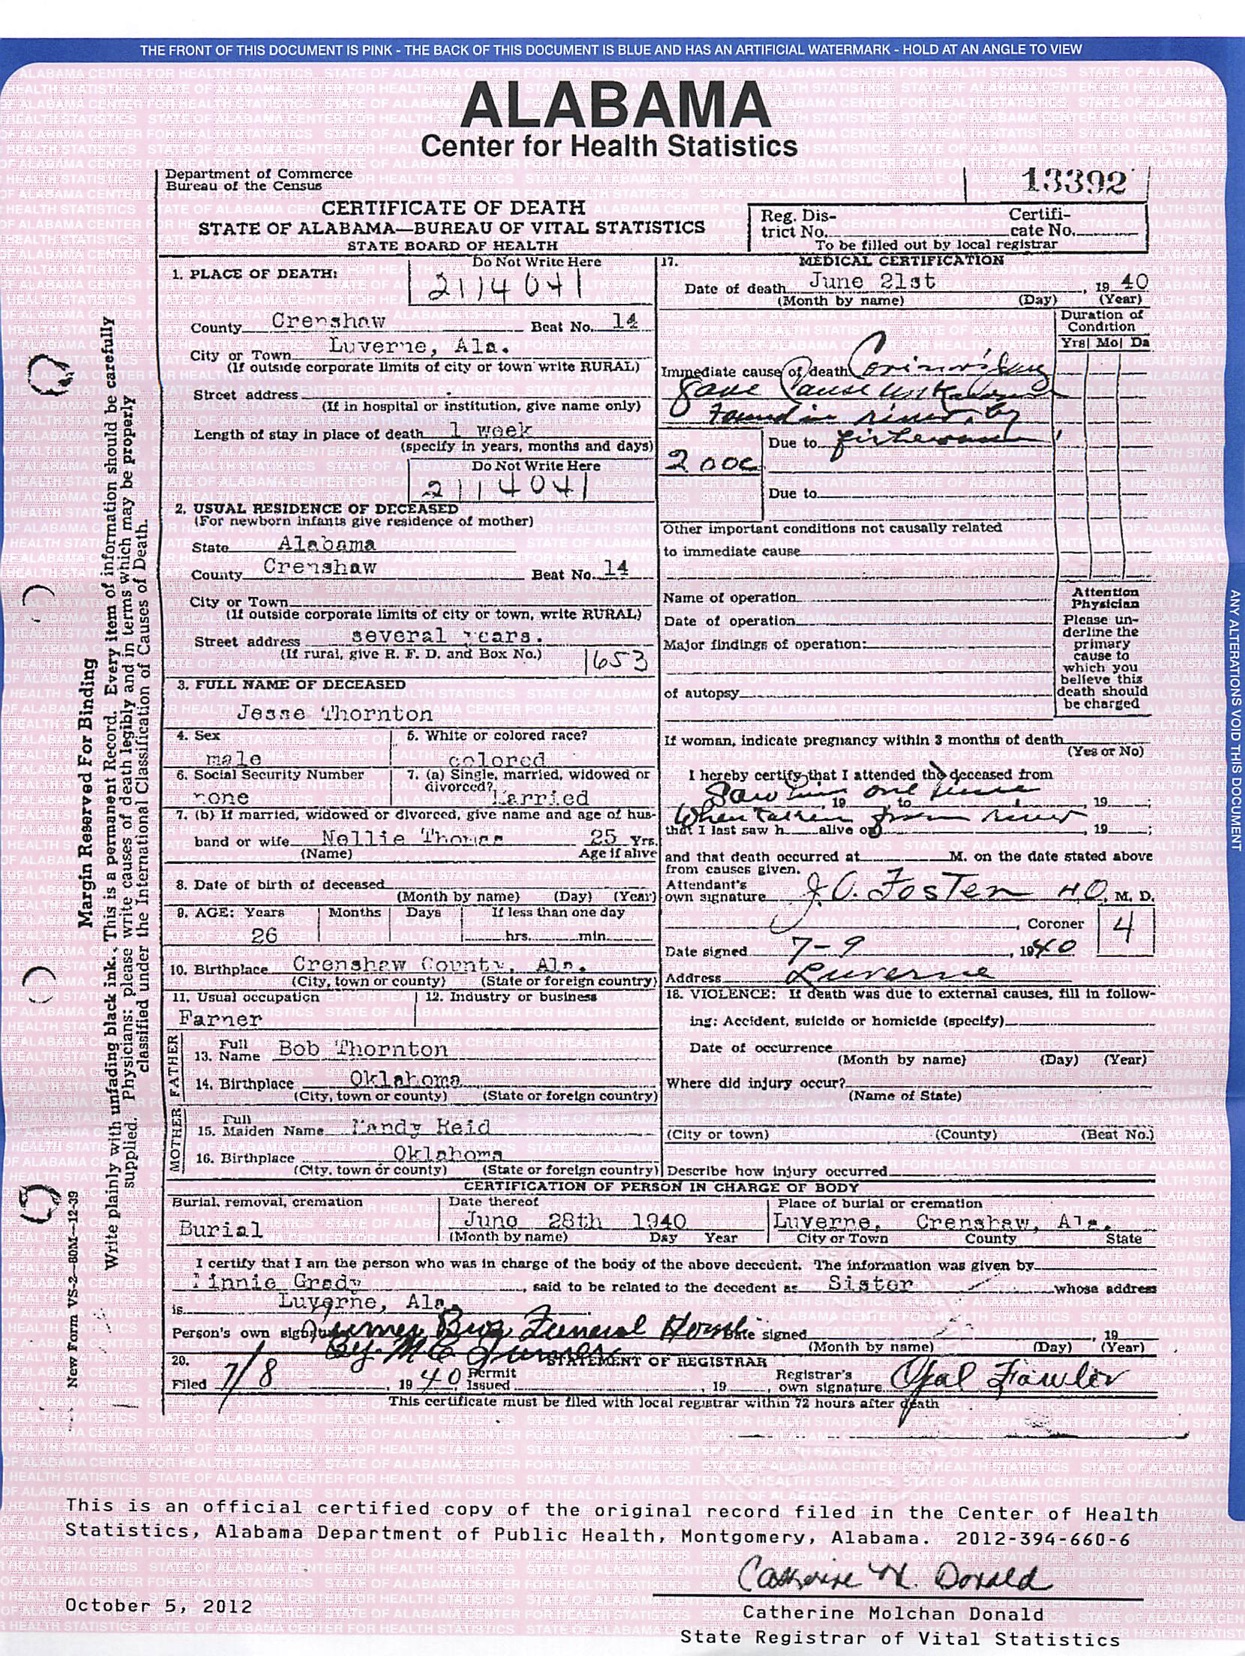 THE FRONT OF THIS DOCUMENT IS PINK - THE BACK OF THIS DOCUMENT IS BLUE AND HAS AN ARTIFICIAL WATERMARK - HOLD AT AN ANGLE TO VIEW
ALABAMA
Center for Health Statistics
Department of Commerce
Bureau of the Census
13392
CERTIFICATE OF DEATH
STATE OF ALABAMA—BUREAU OF VITAL STATISTICS
STATE BOARD OF HEALTH
Reg. Dis- Certifi-
trict No. cate No.
To be filled out by local registrar
1. PLACE OF DEATH:
Do Not Write Here
2114041
County Crenshaw Beat No. 14
City or Town Luverne, Ala.
(If outside corporate limits of city or town write RURAL)
Street address
(If in hospital or institution, give name only)
Length of stay in place of death 1 week
(specify in years, months and days)
Do Not Write Here
2114041
2. USUAL RESIDENCE OF DECEASED
(For newborn infants give residence of mother)
State Alabama
County Crenshaw Beat No. 14
City or Town
(If outside corporate limits of city or town, write RURAL)
Street address several years.
(If rural, give R. F. D. and Box No.)
1653
3. FULL NAME OF DECEASED
Jesse Thornton
4. Sex 5. White or colored race?
male colored
6. Social Security Number 7. (a) Single, married, widowed or
divorced?
none Married
7. (b) If married, widowed or divorced, give name and age of hus-
band or wife Nellie 25 Yrs.
(Name) Age if alive
8. Date of birth of deceased
(Month by name) (Day) (Year)
9. AGE: Years Months Days If less than one day
26 hrs. min.
10. Birthplace Crenshaw County, Ala.
(City, town or county) (State or foreign country)
11. Usual occupation 12. Industry or business
Farmer
FATHER
13. Full Name Bob Thornton
14. Birthplace Oklahoma
(City, town or county) (State or foreign country)
MOTHER
15. Full Maiden Name Mandy Reid
16. Birthplace Oklahoma
(City, town or county) (State or foreign country)
17. MEDICAL CERTIFICATION
Date of death June 21st, 19 40
(Month by name) (Day) (Year)
Duration of
Condition
Yrs Mo Da
Immediate cause of death
Cause unknown
found in river, by
Due to fishermen
2000
Due to
Other important conditions not causally related
to immediate cause
Name of operation
Date of operation
Major findings of operation:
of autopsy
Attention
Physician
Please un-
derline the
primary
cause to
which you
believe this
death should
be charged
If woman, indicate pregnancy within 3 months of death
(Yes or No)
I hereby certify that I attended the deceased from
Saw him one time
, 19 to , 19 ;
When taken from river
that I last saw h alive on , 19 ;
and that death occurred at M. on the date stated above
from causes given.
Attendant's
own signature J. O. Foster HO, M. D.
, Coroner
4
Date signed 7-9, 1940
Address Luverne
18. VIOLENCE: If death was due to external causes, fill in follow-
ing: Accident, suicide or homicide (specify)
Date of occurrence
(Month by name) (Day) (Year)
Where did injury occur?
(Name of State)
(City or town) (County) (Beat No.)
Describe how injury occurred
CERTIFICATION OF PERSON IN CHARGE OF BODY
Burial, removal, cremation Date thereof Place of burial or cremation
Burial June 28th 1940 Luverne, Crenshaw, Ala.
(Month by name) Day Year City or Town County State
I certify that I am the person who was in charge of the body of the above decedent. The information was given by
Minnie Grady, said to be related to the decedent as Sister whose address
is Luverne, Ala.
Person's own signature Turner Bros Funeral Home Date signed , 19
By M C Turner (Month by name) (Day) (Year)
20. STATEMENT OF REGISTRAR
Filed 7/8, 19 40 Permit Issued , 19 Registrar's own signature Opal Fawler
This certificate must be filed with local registrar within 72 hours after death
Margin Reserved For Binding
Write plainly with unfading black ink. This is a permanent Record. Every item of information should be carefully
supplied. Physicians: please write causes of death legibly and in terms which may be properly
classified under the International Classification of Causes of Death.
New Form VS-2—60M—12-39
ANY ALTERATIONS VOID THIS DOCUMENT
This is an official certified copy of the original record filed in the Center of Health
Statistics, Alabama Department of Public Health, Montgomery, Alabama. 2012-394-660-6
Catherine M. Donald
October 5, 2012
Catherine Molchan Donald
State Registrar of Vital Statistics